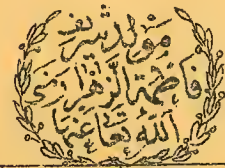 مولد شريف
فاطمة الزهراء رضى
الله تعالى عنها